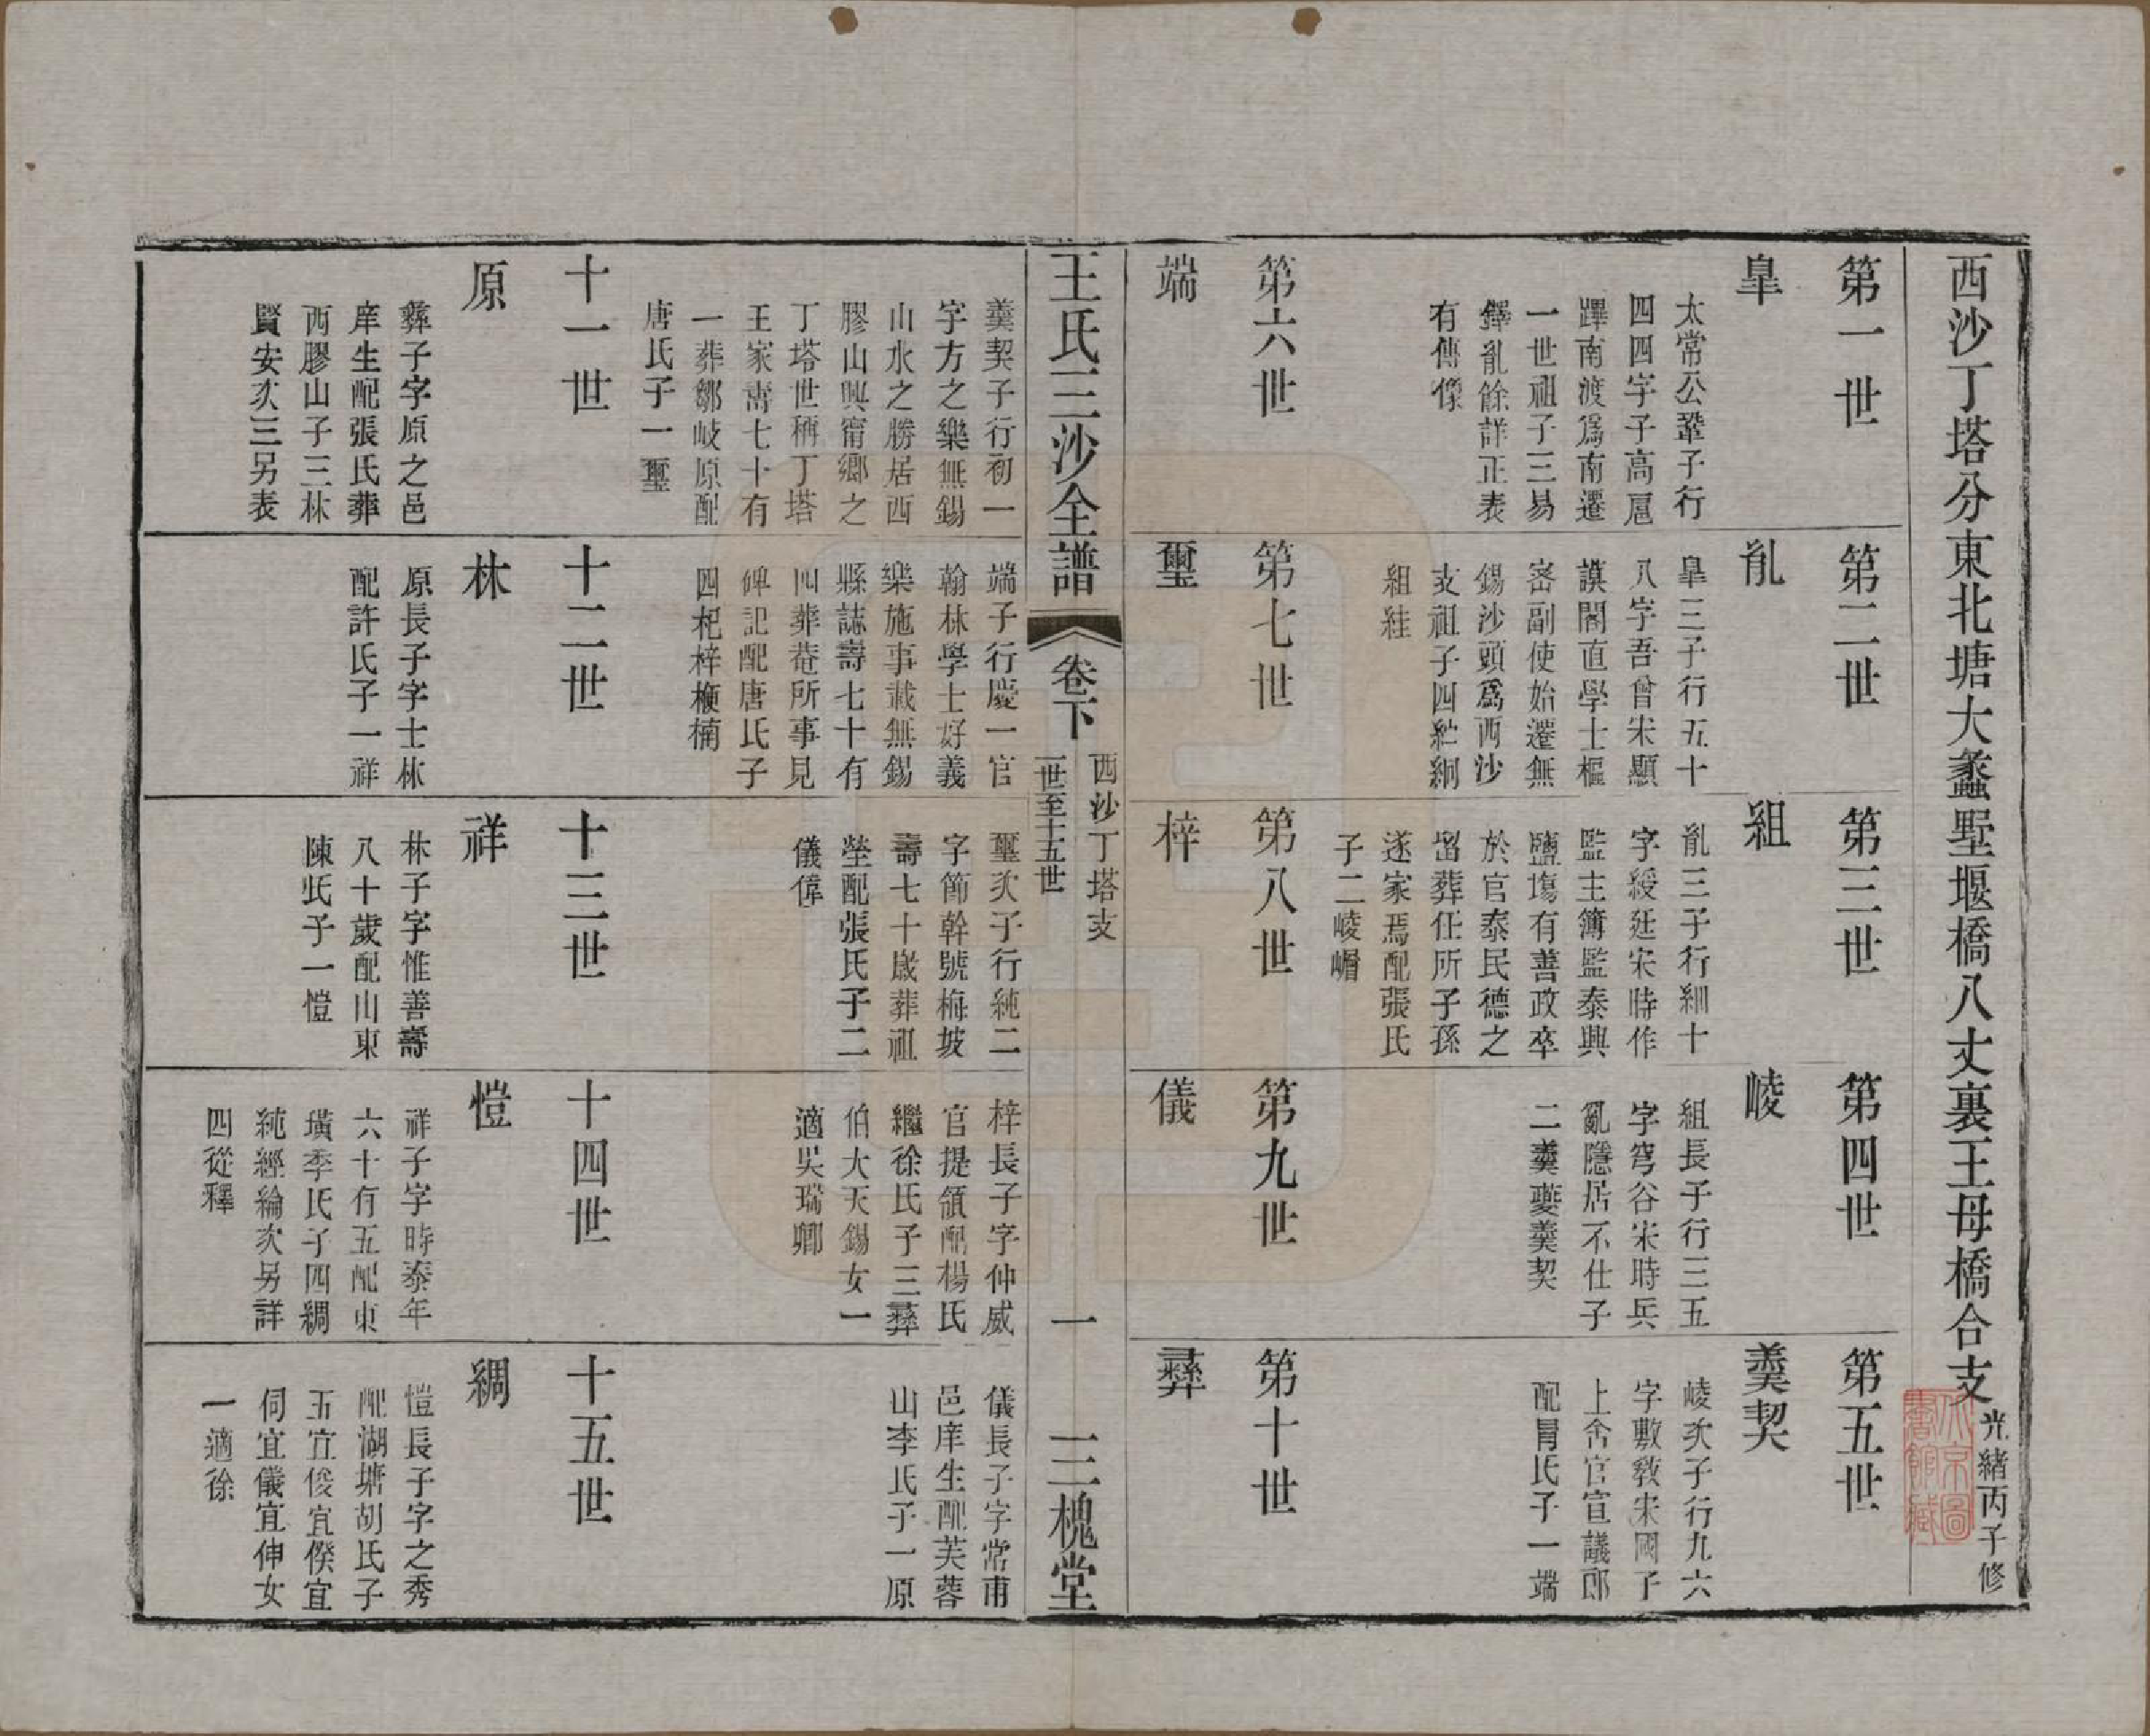 西沙丁塔分東北塘大蠡墅堰橋八丈裏王母橋合支光緒丙子修
第一世
皐
太常公鞏子行
四四字子高扈
蹕南渡爲南遷
一世祖子三易
鐸亂餘詳正表
有傳像
第二世
亂
皐三子行五十
八字吾曾宋顯
謨閣直學士樞
密副使始遷無
錫沙頭爲西沙
支祖子四紪絅
組絓
第三世
組
亂三子行細十
字綬廷宋時作
監主簿監泰興
鹽塲有善政卒
於官泰民德之
留葬任所子孫
遂家焉配張氏
子二崚嵋
第四世
崚
組長子行三五
字穹谷宋時兵
亂隱居不仕子
二羹夔羹契
第五世
羹契
崚次子行九六
字敷敎宋國子
上舍官宣議郎
配胃氏子一端
第六世
端
羹契子行初一
字方之樂無錫
山水之勝居西
膠山興甯鄉之
丁塔世稱丁塔
王家壽七十有
一葬鄒岐原配
唐氏子一璽
第七世
璽
端子行慶一官
翰林學士好義
樂施事載無錫
縣誌壽七十有
四葬菴所事見
碑記配唐氏子
四杞梓楩楠
第八世
梓
璽次子行純二
字節幹號梅坡
壽七十歲葬祖
塋配張氏子二
儀偉
第九世
儀
梓長子字仲威
官提領配楊氏
繼徐氏子三彝
伯大天錫女一
適吳瑞卿
第十世
彝
儀長子字常甫
邑庠生配芙蓉
山李氏子一原
王氏三沙全譜
卷下
西沙丁塔支
一世至十五世
一
三槐堂
十一世
原
彝子字原之邑
庠生配張氏葬
西膠山子三林
賢安次三另表
十二世
林
原長子字士林
配許氏子一祥
十三世
祥
林子字惟善壽
八十歲配山東
陳氏子一愷
十四世
愷
祥子字時泰年
六十有五配東
璜季氏子四綢
純經綸次另詳
四從釋
十五世
綢
愷長子字之秀
配湖塘胡氏子
五宜俊宜傒宜
伺宜儀宜伸女
一適徐